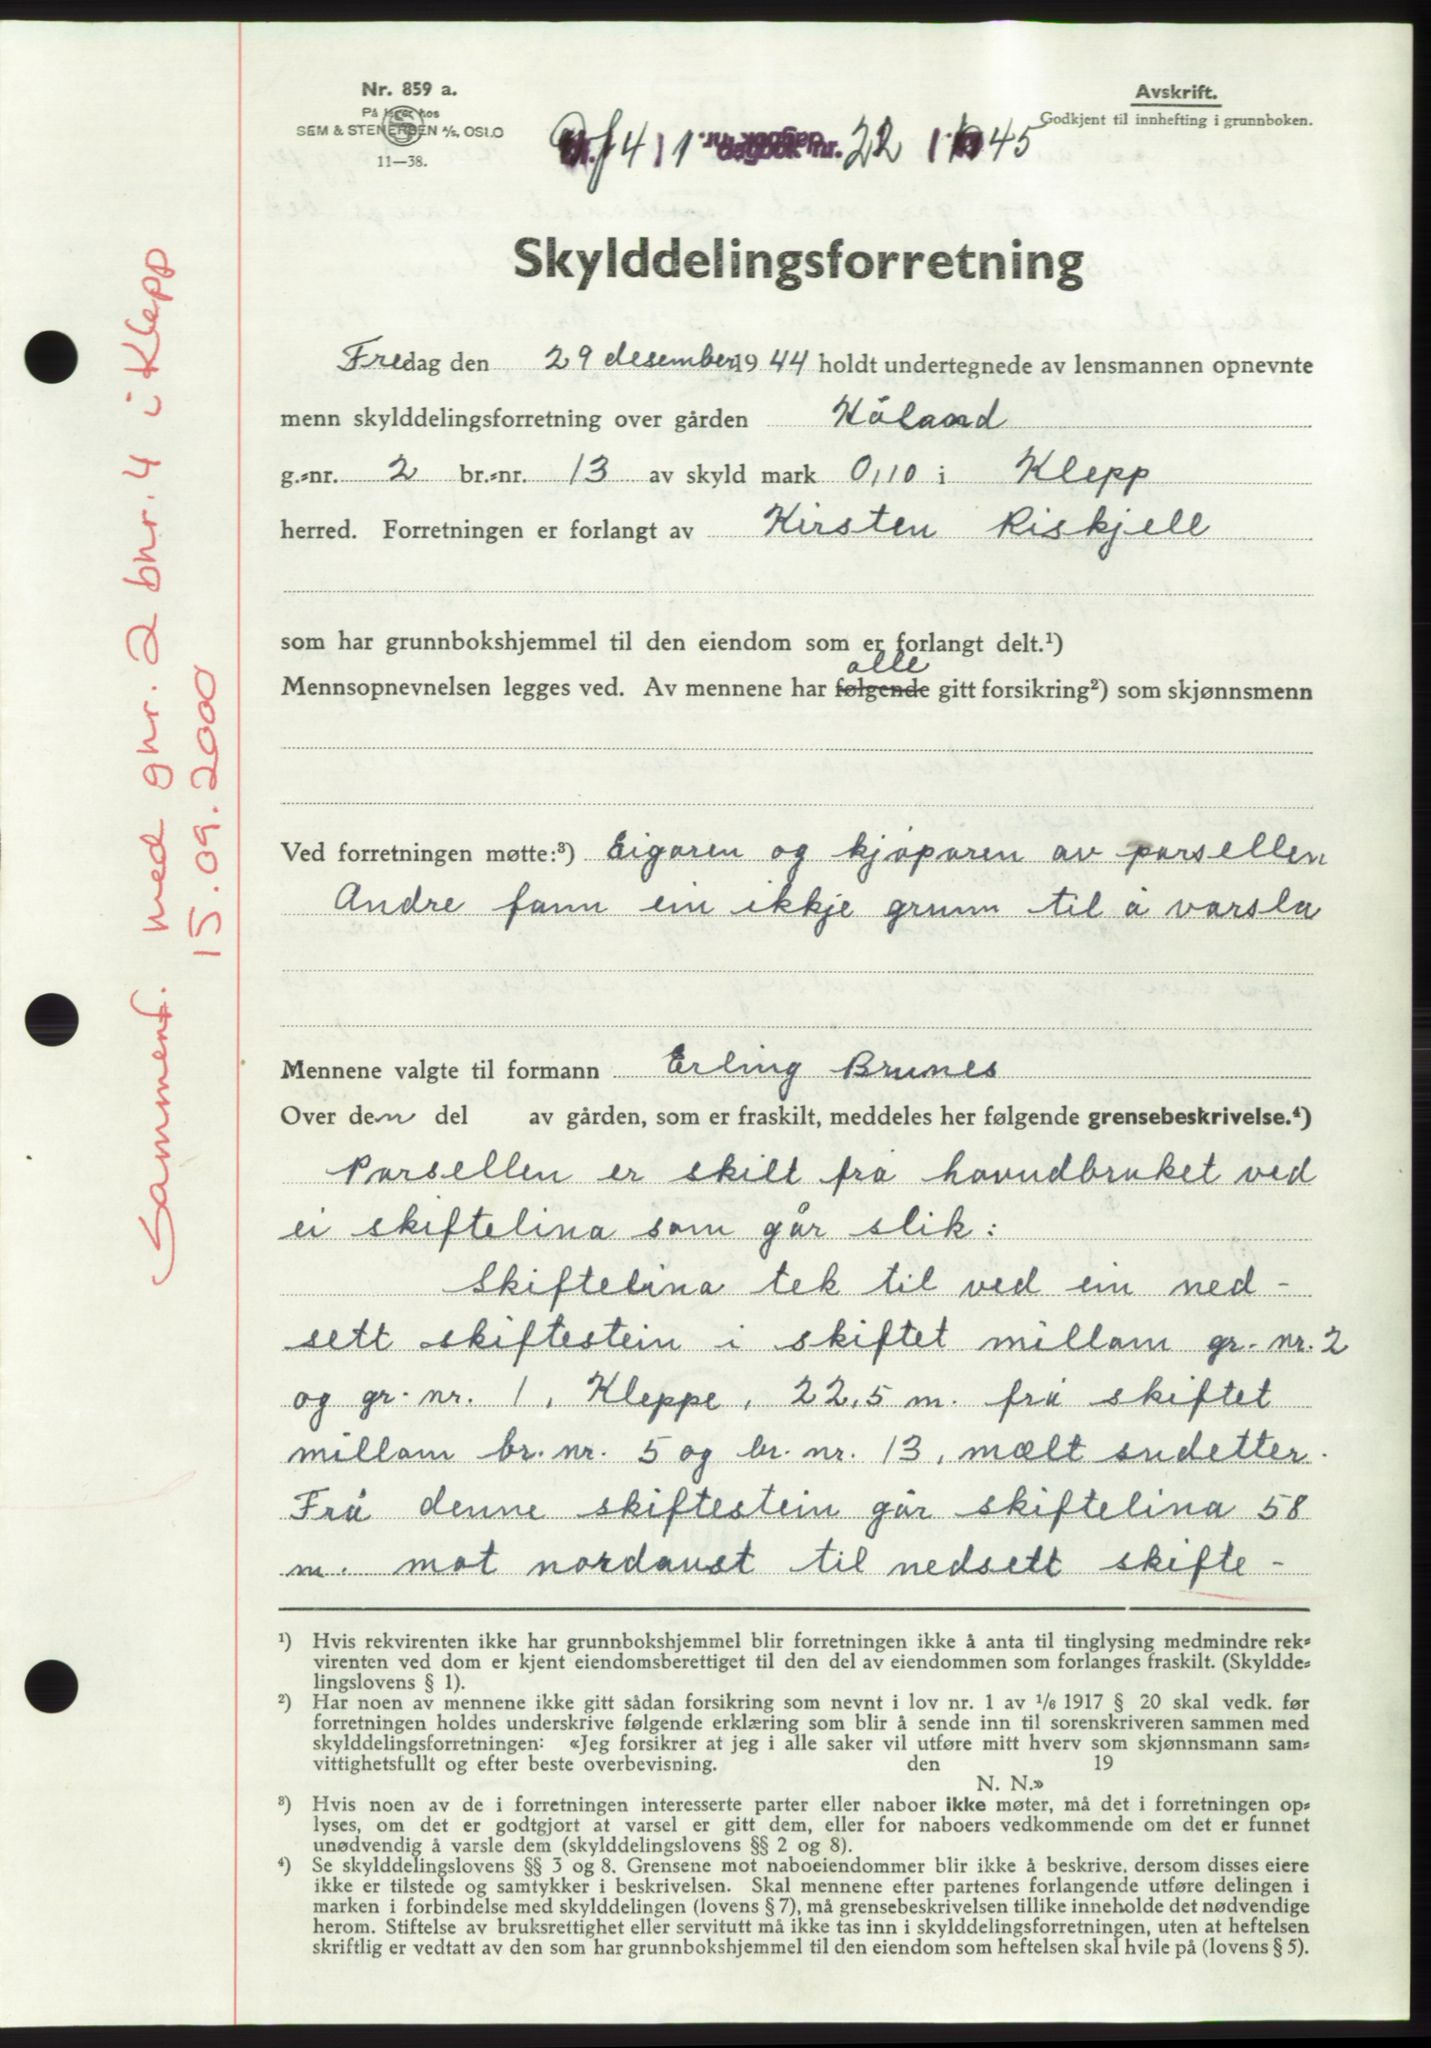 Nr. 859 a.
På lager hos
SEM & STENERSEN A/S, OSLO
11—38.
Avskrift.
Godkjent til innhefting i grunnboken.
dagbok nr. 22 1945
Skylddelingsforretning
Fredag den 29 desember 1944 holdt undertegnede av lensmannen opnevnte
menn skylddelingsforretning over gården Håland
g.-nr. 2 br.-nr. 13 av skyld mark 0,10 i Klepp
herred. Forretningen er forlangt av Kirsten Riskjell
som har grunnbokshjemmel til den eiendom som er forlangt delt.¹)
alle
Mennsopnevnelsen legges ved. Av mennene har følgende gitt forsikring²) som skjønnsmenn
Ved forretningen møtte:³) Eigaren og kjøparen av parsellen
Andre fann ein ikkje grunn til å varsla
Mennene valgte til formann Erling Brunes
Over den del av gården, som er fraskilt, meddeles her følgende grensebeskrivelse.⁴)
Parsellen er skilt frå hovudbruket ved
ei skiftelina som går slik:
Skiftelina tek til ved ein ned-
sett skiftestein i skiftet millom gr. nr. 2
og gr. nr. 1, Kleppe, 22,5 m. frå skiftet
millom br. nr. 5 og br. nr. 13, mælt sudetter.
Frå denne skiftestein går skiftelina 58
m. mot nordaust til nedsett skifte-
¹) Hvis rekvirenten ikke har grunnbokshjemmel blir forretningen ikke å anta til tinglysing medmindre rek-
virenten ved dom er kjent eiendomsberettiget til den del av eiendommen som forlanges fraskilt. (Skyldde-
lingslovens § 1).
²) Har noen av mennene ikke gitt sådan forsikring som nevnt i lov nr. 1 av 1/6 1917 § 20 skal vedk. før
forretningen holdes underskrive følgende erklæring som blir å sende inn til sorenskriveren sammen med
skylddelingsforretningen: «Jeg forsikrer at jeg i alle saker vil utføre mitt hverv som skjønnsmann sam-
vittighetsfullt og efter beste overbevisning. den 19
N. N.»
³) Hvis noen av de i forretningen interesserte parter eller naboer ikke møter, må det i forretningen op-
lyses, om det er godtgjort at varsel er gitt dem, eller for naboers vedkommende om det er funnet
unødvendig å varsle dem (skylddelingslovens §§ 2 og 8).
⁴) Se skylddelingslovens §§ 3 og 8. Grensene mot naboeiendommer blir ikke å beskrive, dersom disses eiere
ikke er tilstede og samtykker i beskrivelsen. Skal mennene efter partenes forlangende utføre delingen i
marken i forbindelse med skylddelingen (lovens § 7), må grensebeskrivelsen tillike inneholde det nødvendige
herom. Stiftelse av bruksrettighet eller servitutt må ikke tas inn i skylddelingsforretningen, uten at heftelsen
skriftlig er vedtatt av den som har grunnbokshjemmel til den eiendom som heftelsen skal hvile på (lovens § 5).
Sammenf. med gnr. 2 bnr. 4 i Klepp
15.09.2000